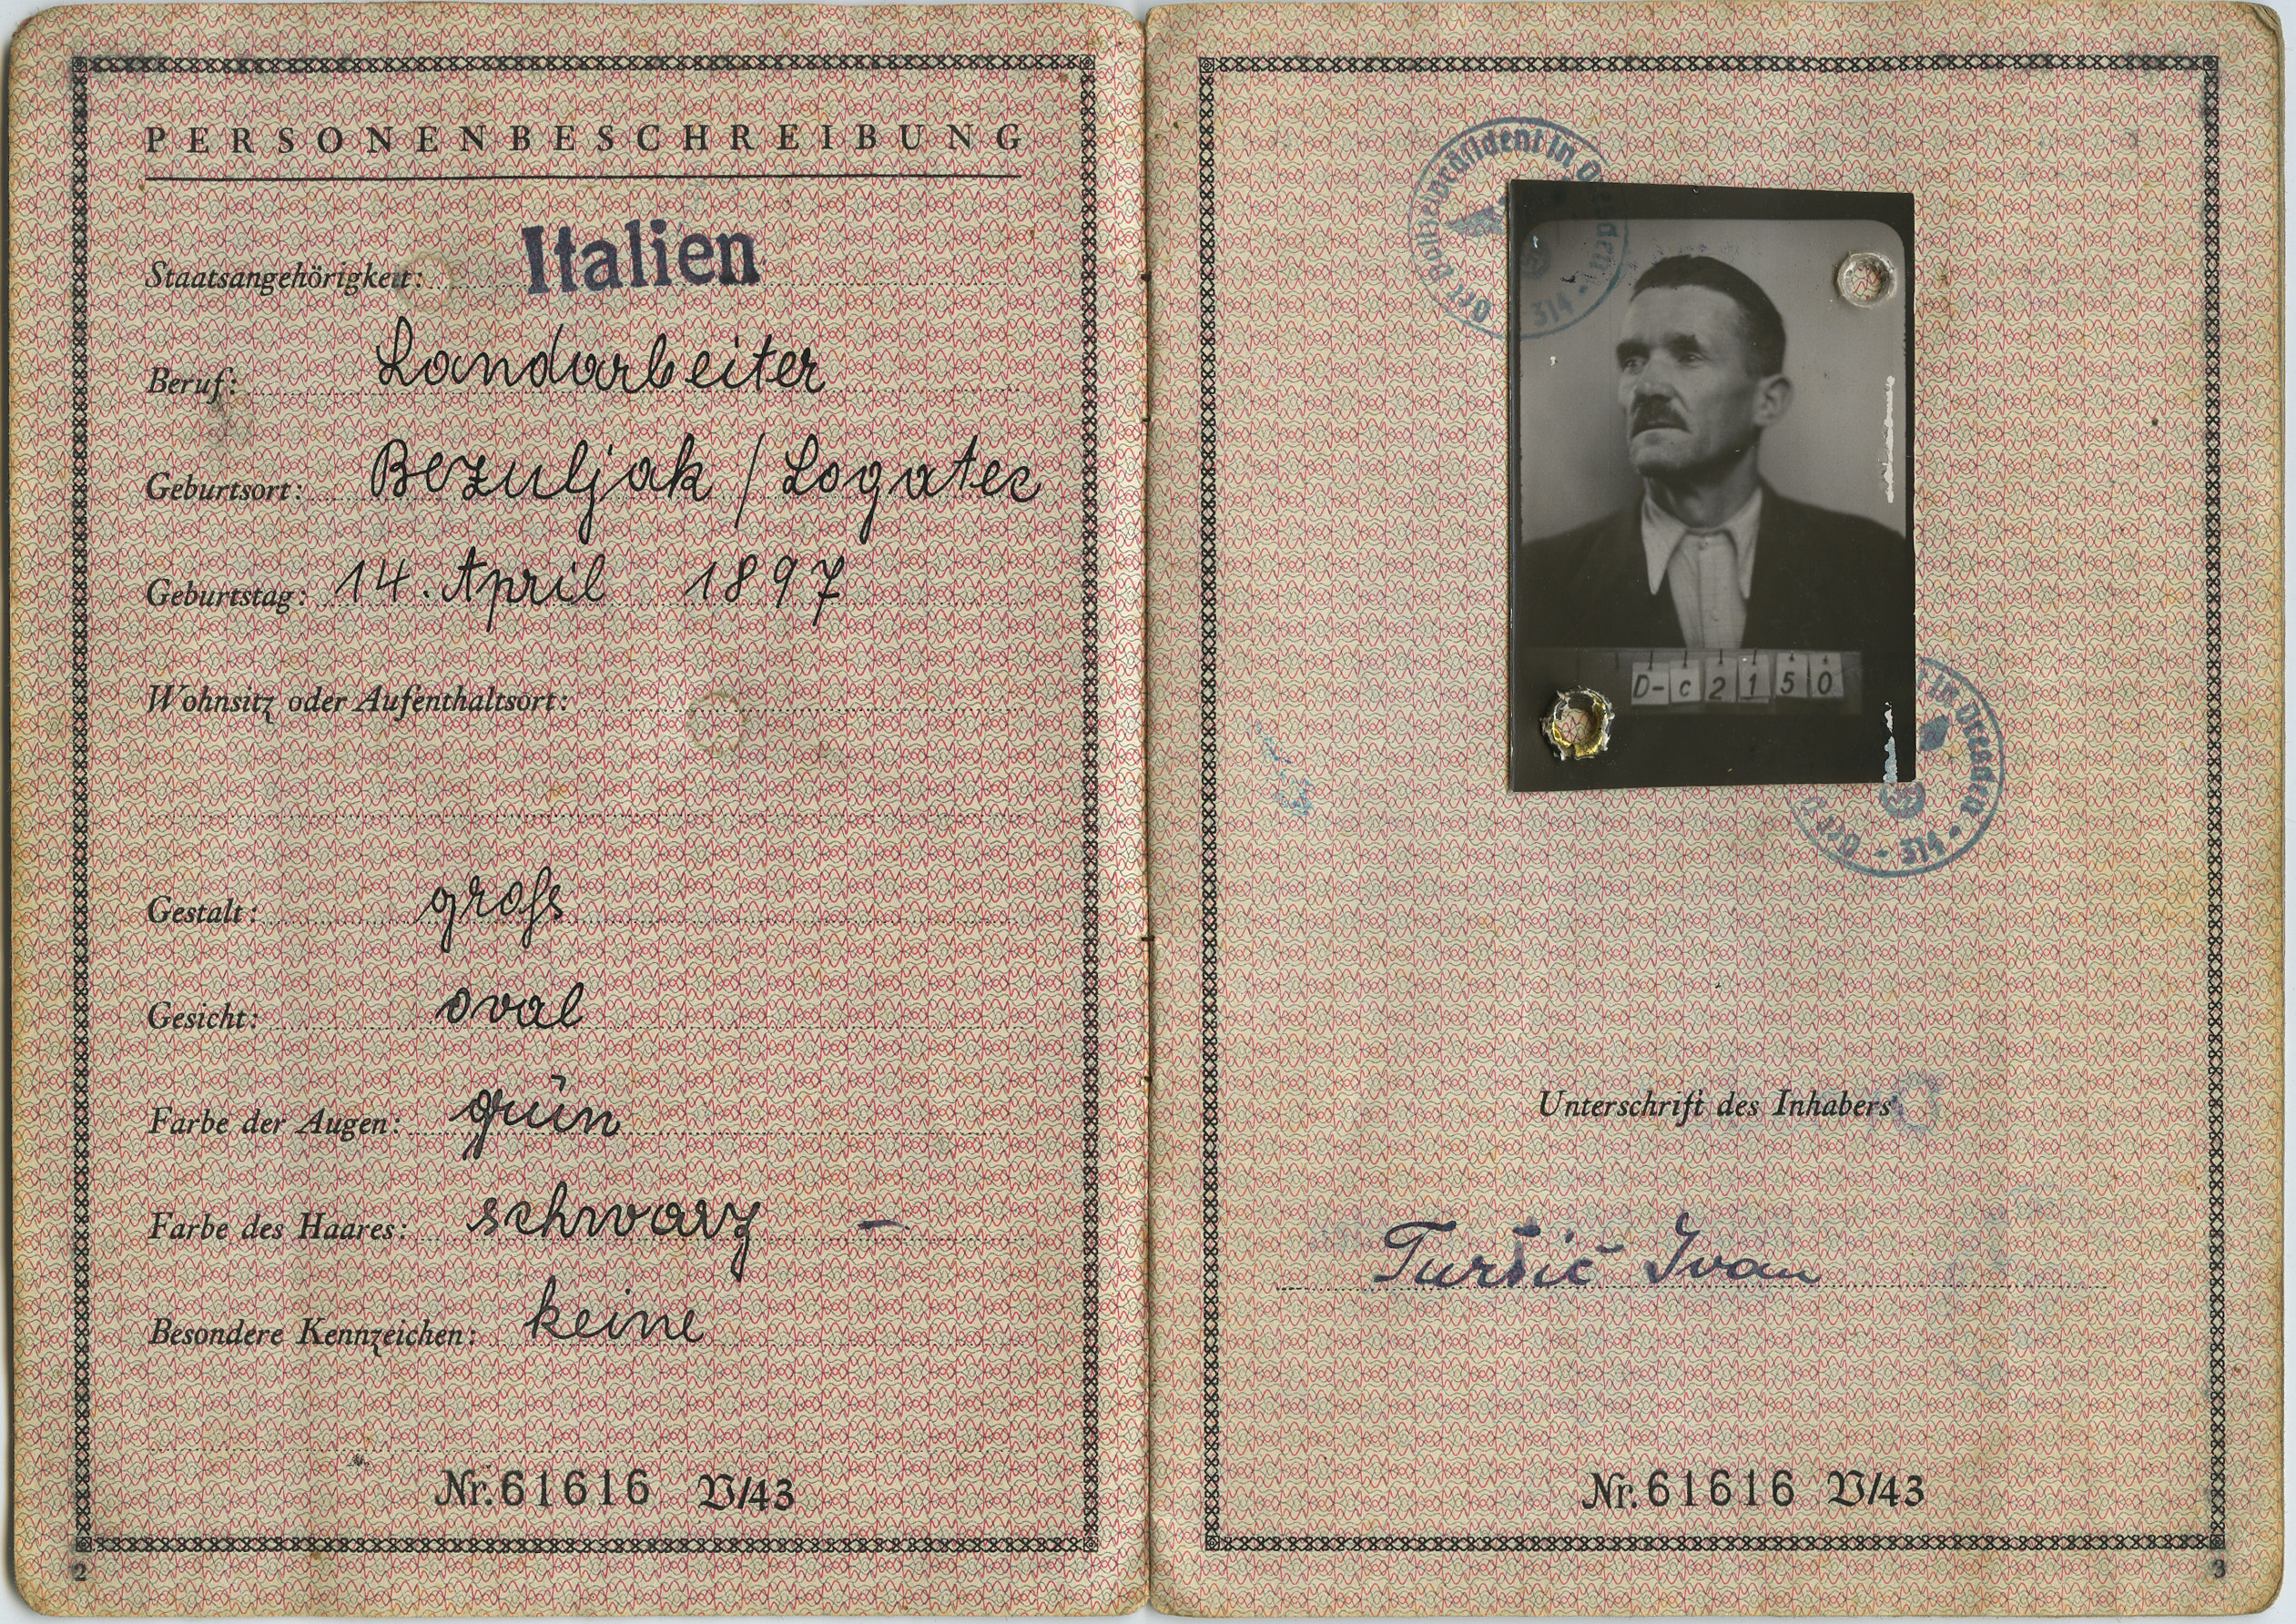 PERSONENBESCHREIBUNG
Staatsangehörigkeit: Italien
Beruf: Landarbeiter
Geburtsort: Bezuljak / Logatec
Geburtstag: 14. April 1897
Wohnsitz oder Aufenthaltsort:
Gestalt: groß
Gesicht: oval
Farbe der Augen: grün
Farbe des Haares: schwarz –
Besondere Kennzeichen: keine
Nr. 61616 V/43
2
Der Polizeipräsident in Dresden
314
D-C2150
in Dresden
314
Der
Unterschrift des Inhabers
Turšič Ivan
Nr. 61616 V/43
3